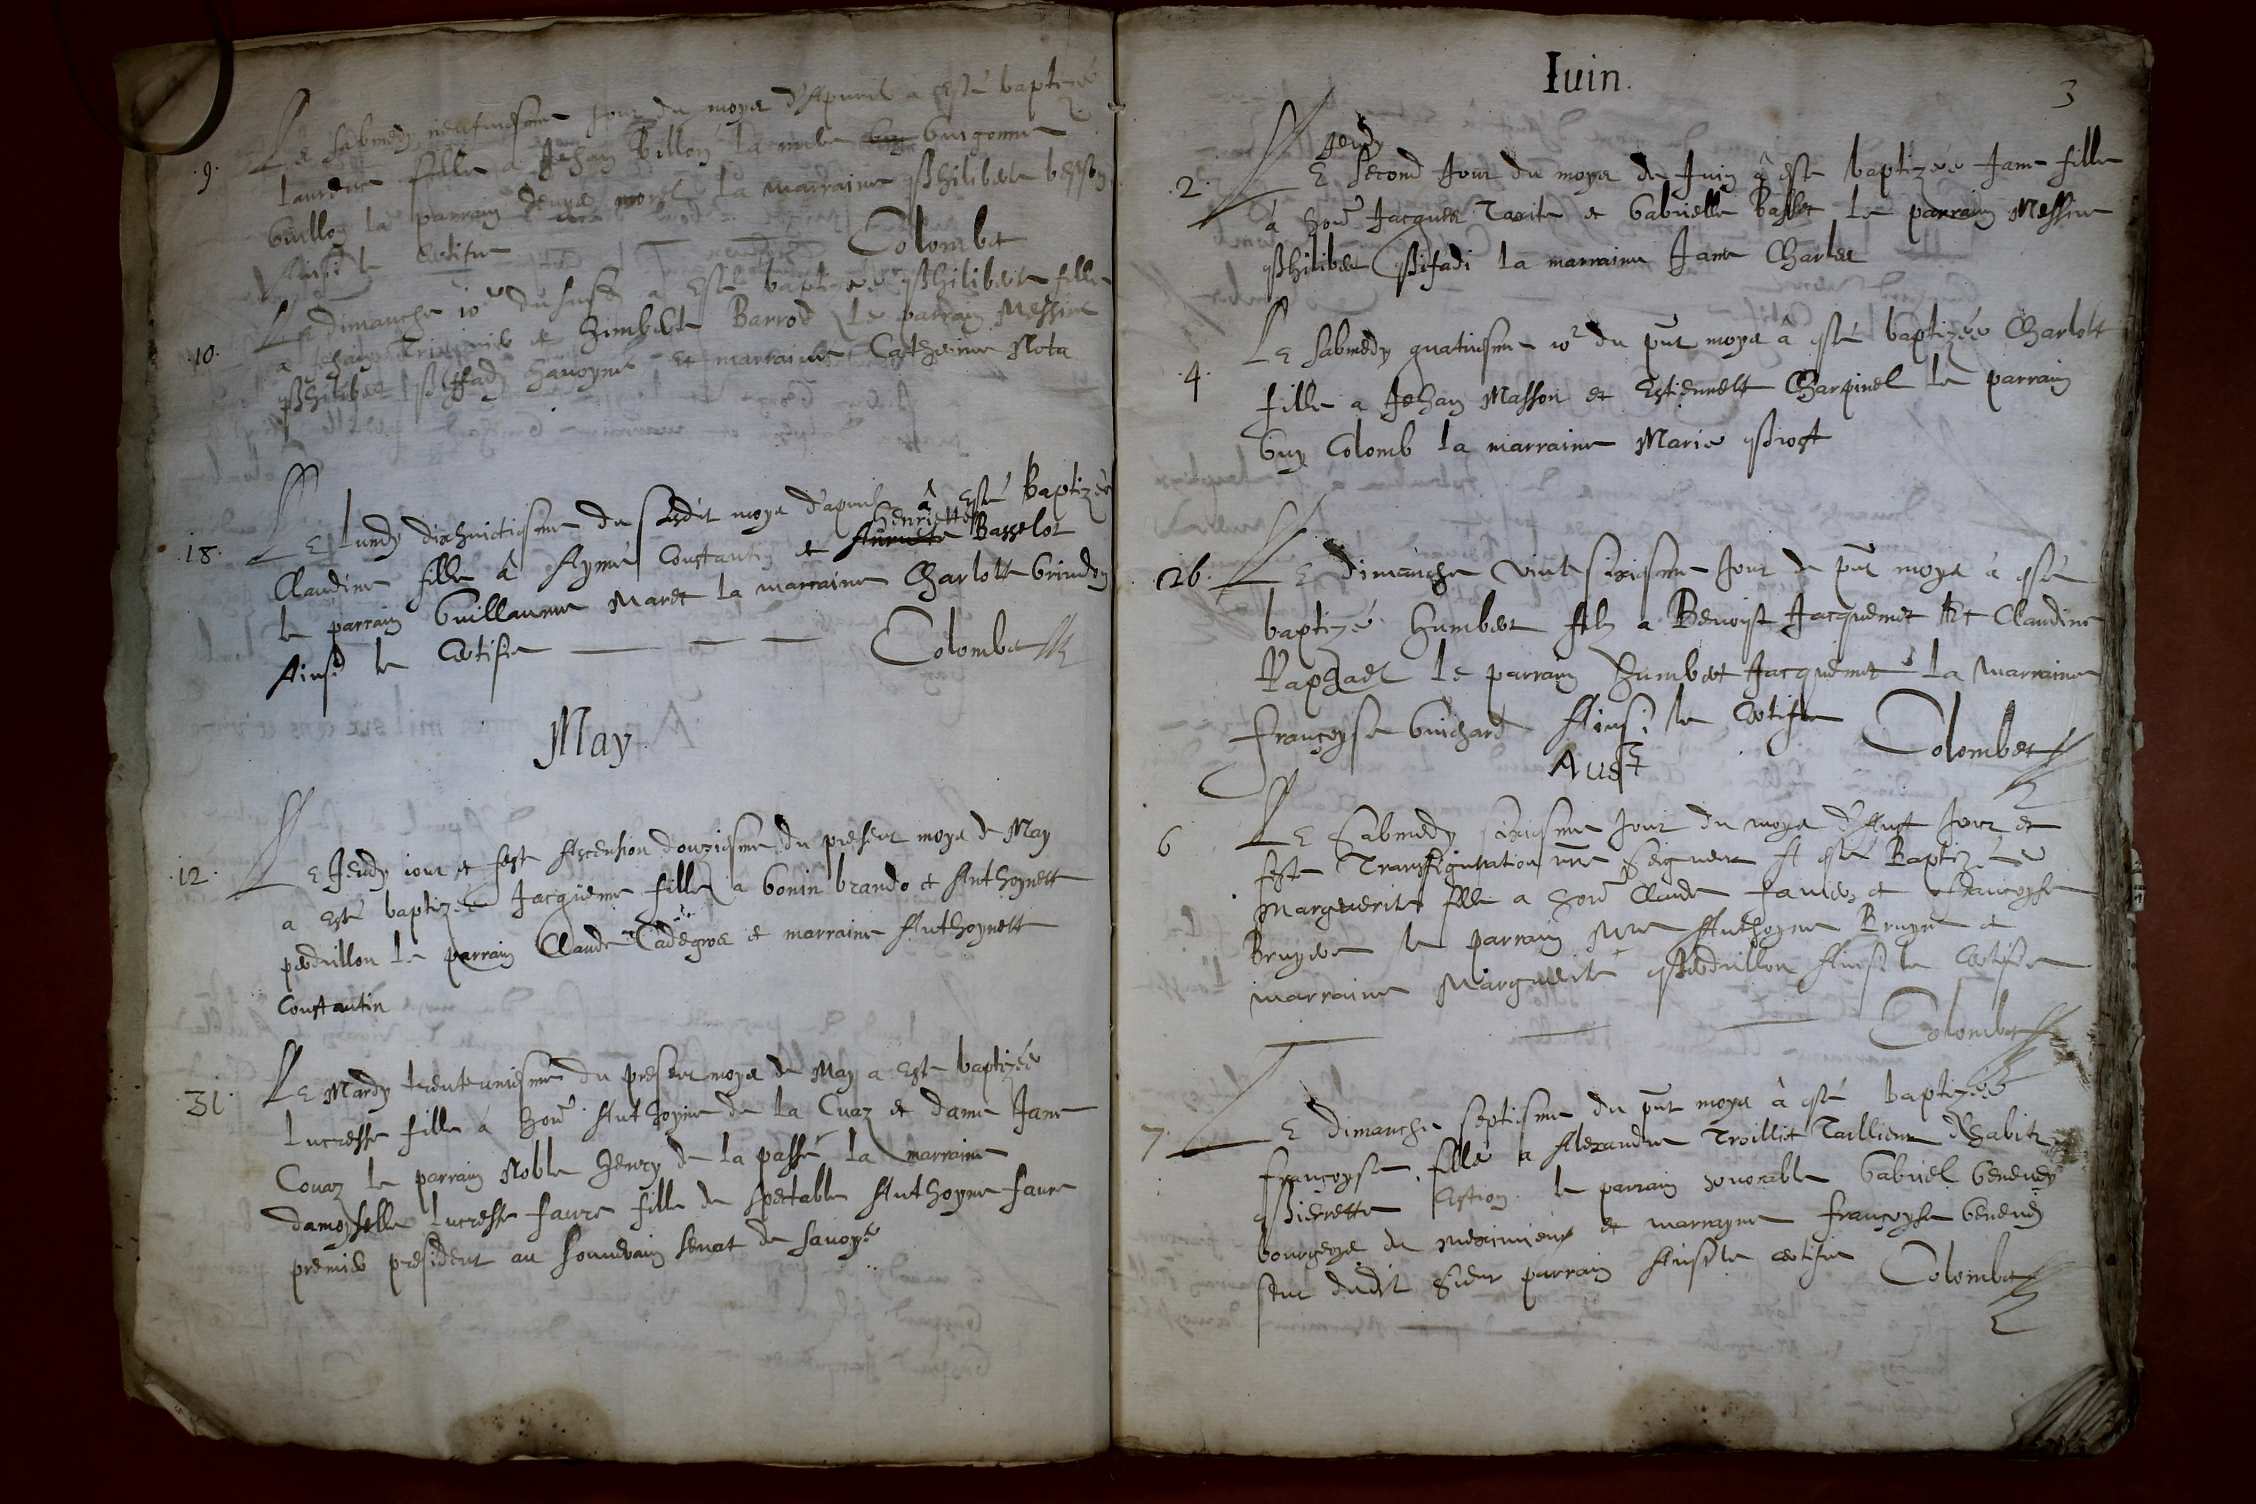 9. Le sabmedy neufuiesme jour du moys d'Apuril a esté baptizée
Laurence fille a Jehan Billon la mere Guigonne
Guillon le parrain Denys morel la marraine Philiberte besson
Ainsi le certifie Colombet
10. Le dimanche 10e dususd a esté baptizée Philiberte fille
a Jehan et Himberte Barrod le parrain Messire
Philibert Chanoyne et marraine Catherine Nota
18. Le Lundy dixhuictiesme du susdit moys d'apuril â esté Baptizée
Henriette
Claudine fille â Aymé Constantin et Basselot
le parrain Guillaume Maret la marraine Charlotte Grindon
Ainsi le Certifie Colombet
May
12. Le Jeudy iour et feste Ascension douziesme du present moys de May
a esté baptizée Jacquéme fille a Gonin brando et Anthoynette
perdrillon Le parrain Claude Cadegros et marraine Anthoynette
Constantin
31. Le Mardy trenteuniesme du present moys de May a este baptizée
Lucresse fille â hon Anthoyne de la Cuaz et dame Jane
Couaz le parrain Noble Henry de la passé la marraine
damoyselle Lucresse faure fille de spectable Anthoyne faure
premier president au souuerain senat de sauoye
Iuin.
3
Jeudy
2. Le second Jour du moys de Juin â este baptizée Jane fille
â hon Jacques Taxite et Gabrielle Basset Le parrain Messire
Philibert Pifadi la marraine Jane Charles
4. Le sabmedy quatriesme jor du pnt moys â esté baptizée Charlotte
fille a Jehan Masson et Estiennette Charpinel le parrain
Guy Colomb la marraine Marie Prost
26. Le dimanche vint sixiesme Jour de pnt moys â esté
baptizé Humbert filz a Benoist Jacquemet et Claudine
Raphael le parrain Humbert Jacquemet la marraine
Françoyse Guichard Ainsi le Certifie Colombet
Aust
6 Le Sabmedy sixiesme Jour du moys d'Aust Jour et
feste Transfiguration nre Seigneur A esté Baptizée
Marguerite fille a hon Claude et Françoyse
Bruyere le parrain Anthoyne Bruyre et
marraine Marguerite Perdrillon Ainsi le Certifie
Colombet
7. Le dimanche septiesme du pnt moys â esté baptizée
Françoyse fille a Alexandre Troillit Taillieur &habit
Pierrette Astion le parrain honorable Gabriel Geneuey
bourgeoys de Meximieux et marrayne Françoyse Geneuey
seur dudit Sieur parrain Ainsi le certifie Colombet